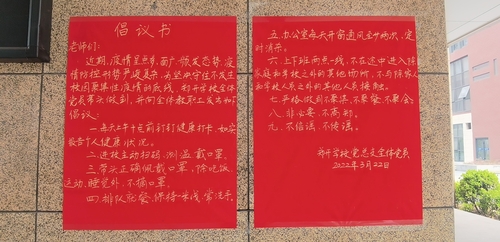 倡议书
老师们:
近期,疫情呈点多、面广、频发态势,疫
情防控形势严峻复杂,为坚决守住不发生
校园聚集性疫情的底线,郑开学校全体
党员带头做到,并向全体教职工发出如下
倡议:
一.每天上午十点前钉钉健康打卡,如实
报告个人健康状况。
二.进校主动扫码、测温、戴口罩。
三.带头正确佩戴口罩,除吃饭
运动、睡觉外,不摘口罩。
四.排队就餐,保持一米线,常洗手。
五.办公室每天开窗通风至少两次,定
时消杀。
六.上下班两点一线,不在途中进入除
家庭和学校之外的其他场所,不与除家人
和学校人员之外的其他人员接触。
七.严格做到不聚集、不聚餐、不聚会。
八.非必要,不离郑。
九.不信谣、不传谣。
郑开学校党总支全体党员
2022年3月22日